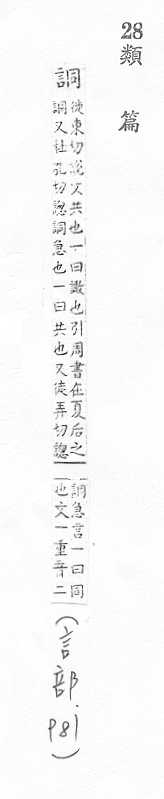 28
類篇
詷
徒東切説文共也一曰譀也引周書在夏后之
詷又杜孔切謥詷急也一曰共也又徒弄切謥
詷急言一曰同
也文一重音二
(言部 P81)